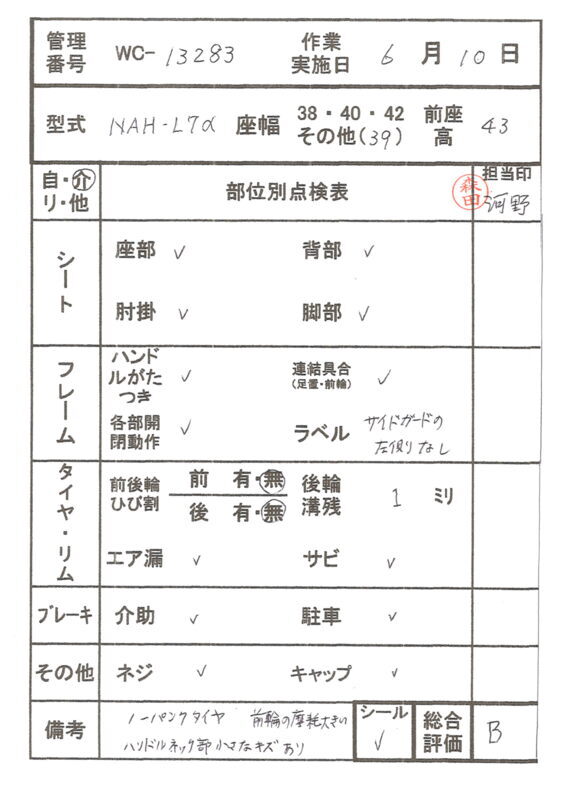 管理番号 WC-13283 作業実施日 6月10日
型式 NAH-L7α 座幅 38・40・42 その他(39) 前座高 43
自・介 リ・他 部位別点検表 担当印 森田 河野
シート 座部 ✓ 背部 ✓
肘掛 ✓ 脚部 ✓
フレーム ハンドルがたつき ✓ 連結具合(足置・前輪) ✓
各部開閉動作 ✓ ラベル サイドガードの左側りなし
タイヤ・リム 前後輪ひび割 前 有・無 後 有・無 後輪溝残 1 ミリ
エア漏 ✓ サビ ✓
ブレーキ 介助 ✓ 駐車 ✓
その他 ネジ ✓ キャップ ✓
備考 ノーパンクタイヤ 前輪の摩耗大きい
ハンドルネック部小さなキズあり
シール ✓ 総合評価 B